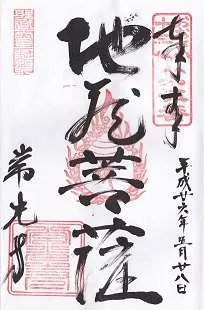 奉拝
平成廿六年五月廿八日
地蔵菩薩
常光寺